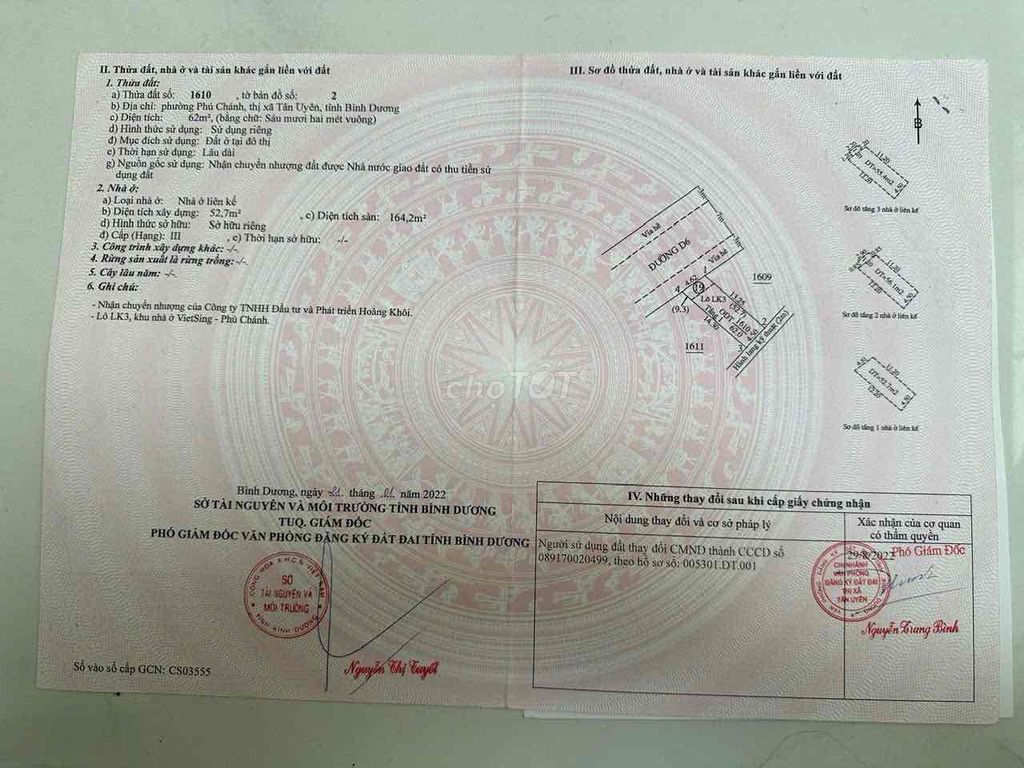 II. Thửa đất, nhà ở và tài sản khác gắn liền với đất
1. Thửa đất:
a) Thửa đất số: 1610 , tờ bản đồ số: 2
b) Địa chỉ: phường Phú Chánh, thị xã Tân Uyên, tỉnh Bình Dương
c) Diện tích: 62m², (bằng chữ: Sáu mươi hai mét vuông)
d) Hình thức sử dụng: Sử dụng riêng
đ) Mục đích sử dụng: Đất ở tại đô thị
e) Thời hạn sử dụng: Lâu dài
g) Nguồn gốc sử dụng: Nhận chuyển nhượng đất được Nhà nước giao đất có thu tiền sử
dụng đất
2. Nhà ở:
a) Loại nhà ở: Nhà ở liên kế
b) Diện tích xây dựng: 52,7m² , c) Diện tích sàn: 164,2m²
d) Hình thức sở hữu: Sở hữu riêng
đ) Cấp (Hạng): III , e) Thời hạn sở hữu: -/-
3. Công trình xây dựng khác: -/-
4. Rừng sản xuất là rừng trồng: -/-
5. Cây lâu năm: -/-
6. Ghi chú:
- Nhận chuyển nhượng của Công ty TNHH Đầu tư và Phát triển Hoàng Khôi.
- Lô LK3, khu nhà ở VietSing - Phú Chánh.
Bình Dương, ngày tháng năm 2022
SỞ TÀI NGUYÊN VÀ MÔI TRƯỜNG TỈNH BÌNH DƯƠNG
TUQ. GIÁM ĐỐC
PHÓ GIÁM ĐỐC VĂN PHÒNG ĐĂNG KÝ ĐẤT ĐAI TỈNH BÌNH DƯƠNG
CỘNG HÒA X.H.C.N VIỆT NAM
SỞ
TÀI NGUYÊN VÀ
MÔI TRƯỜNG
TỈNH BÌNH DƯƠNG
Nguyễn Thị Tuyết
Số vào sổ cấp GCN: CS03555
III. Sơ đồ thửa đất, nhà ở và tài sản khác gắn liền với đất
B
3m
Vỉa hè
7m
ĐƯỜNG D6
Vỉa hè
3m
1609
4.62
1
4
19
Lô LK3
13.24
(52.7)
(9.3)
ODT
1610
62.0
Tầng 3
14.30
2
4.50
3
1611
Hành lang kỹ thuật (2m)
11.20
DT=55.4m2
12.20
4.50
Sơ đồ tầng 3 nhà ở liên kế
11.20
DT=56.1m2
12.20
4.50
Sơ đồ tầng 2 nhà ở liên kế
11.20
DT=52.7m2
12.20
4.50
Sơ đồ tầng 1 nhà ở liên kế
choTỐT
IV. Những thay đổi sau khi cấp giấy chứng nhận
Nội dung thay đổi và cơ sở pháp lý
Xác nhận của cơ quan
có thẩm quyền
Người sử dụng đất thay đổi CMND thành CCCD số
089170020499, theo hồ sơ số: 005301.DT.001
29/8/2022
Phó Giám Đốc
CHI NHÁNH
VĂN PHÒNG
ĐĂNG KÝ ĐẤT ĐAI
THỊ XÃ
TÂN UYÊN
Nguyễn Trung Bình